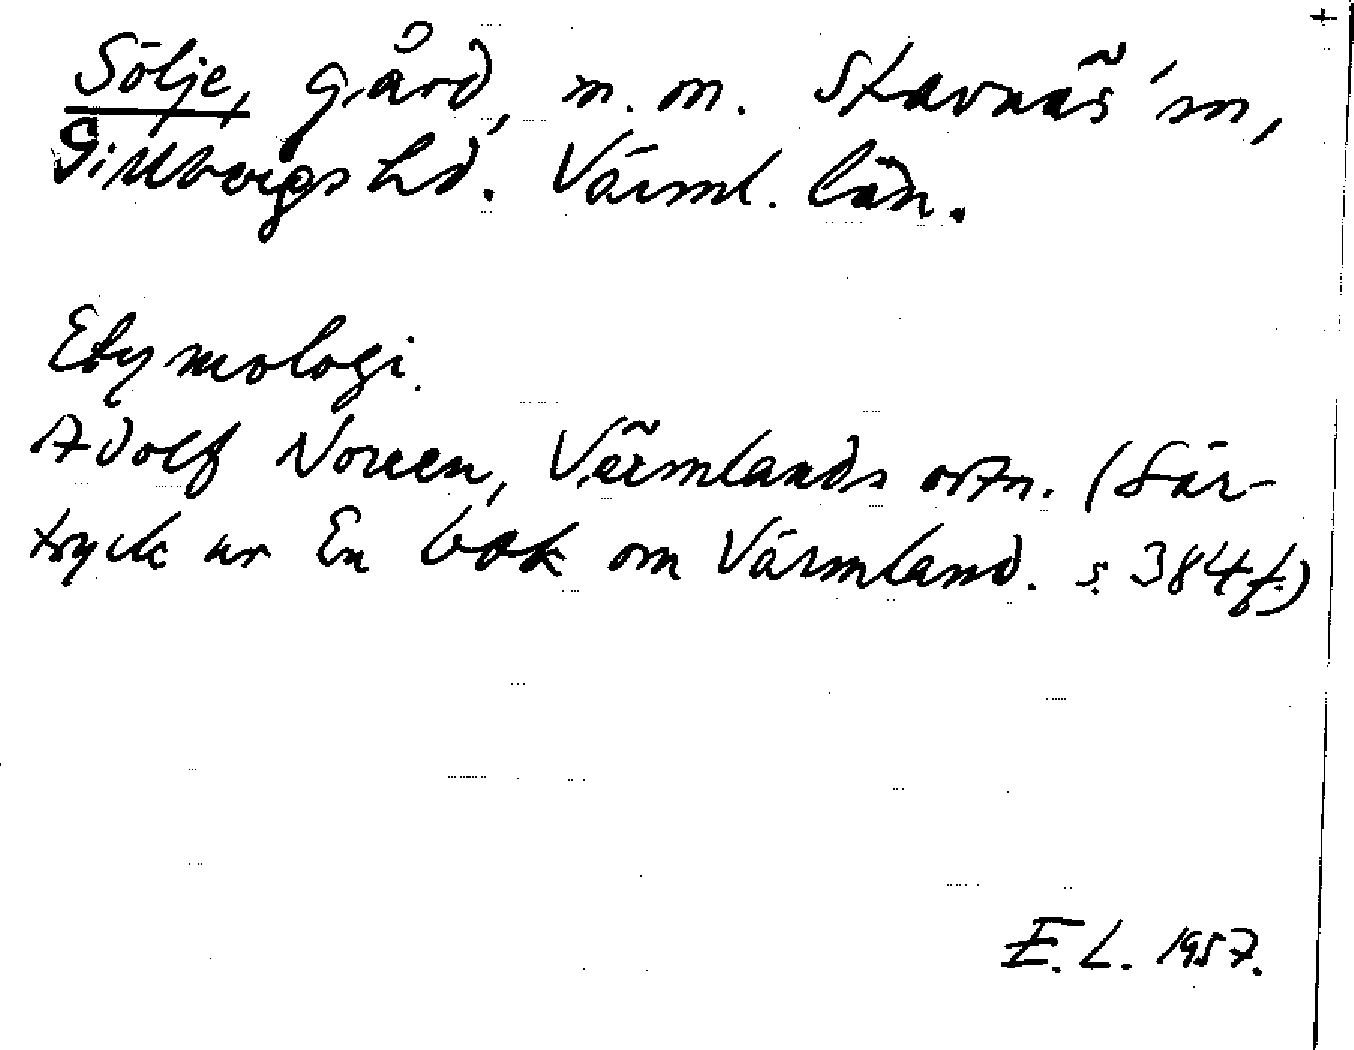 Sölje, gård, m. m. Stavnäs sn,
Gillbergs hd. Värml. län.
Etymologi.
Adolf Noreen, Värmlands ortn. (Sär-
tryck ur En bok om Värmland. s. 384 f.)
E. L. 1957.